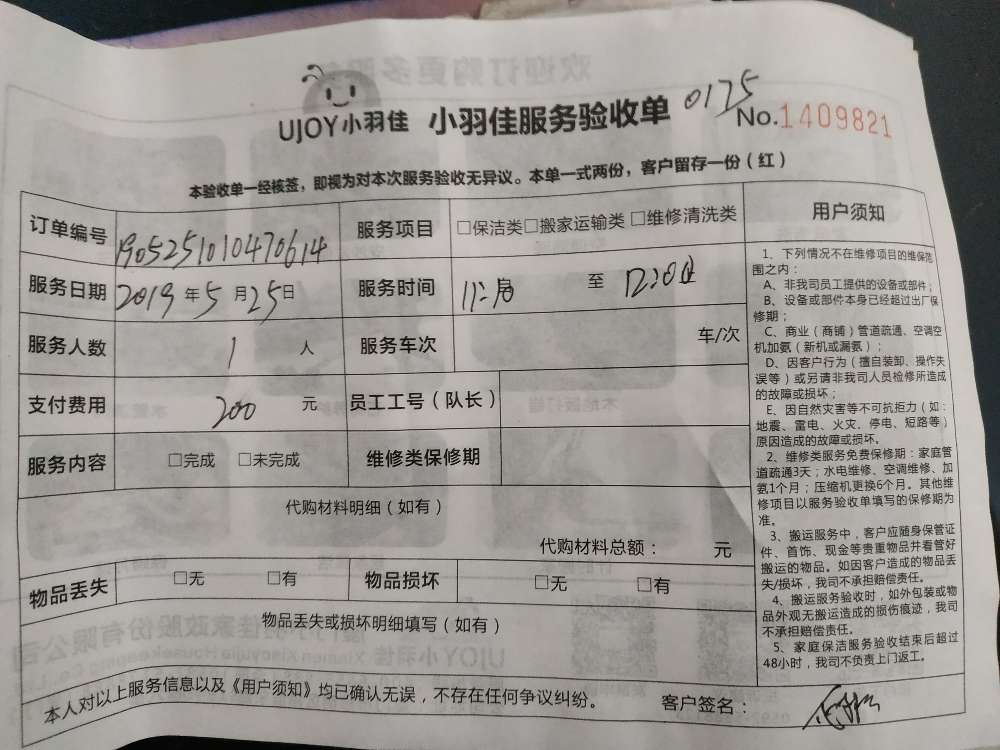 UJOY小羽佳 小羽佳服务验收单 0175 No.1409821
本验收单一经核签，即视为对本次服务验收无异议。本单一式两份，客户留存一份（红）
订单编号 1905251010470614 服务项目 □保洁类□搬家运输类 □维修清洗类
服务日期 2019年5月25日 服务时间 至
服务人数 1 人 服务车次 车/次
支付费用 200 元 员工工号（队长）
服务内容 □完成 □未完成 维修类保修期
代购材料明细（如有）
代购材料总额： 元
物品丢失 □无 □有 物品损坏 □无 □有
物品丢失或损坏明细填写（如有）
用户须知
1、下列情况不在维修项目的维保范
围之内：
A、非我司员工提供的设备或部件；
B、设备或部件本身已经超过出厂保
修期；
C、商业（商铺）管道疏通、空调空
机加氨（新机或漏氨）；
D、因客户行为（擅自装卸、操作失
误等）或另请非我司人员检修所造成
的故障或损坏；
E、因自然灾害等不可抗拒力（如：
地震、雷电、火灾、停电、短路等）
原因造成的故障或损坏。
2、维修类服务免费保修期：家庭管
道疏通3天；水电维修、空调维修、加
氨1个月；压缩机更换6个月。其他维
修项目以服务验收单填写的保修期为
准。
3、搬运服务中，客户应随身保管证
件、首饰、现金等贵重物品并看管好
搬运的物品。如因客户造成的物品丢
失/损坏，我司不承担赔偿责任。
4、搬运服务验收时，如外包装或物
品外观无搬运造成的损伤痕迹，我司
不承担赔偿责任。
5、家庭保洁服务验收结束后超过
48小时，我司不负责上门返工。
本人对以上服务信息以及《用户须知》均已确认无误，不存在任何争议纠纷。 客户签名：